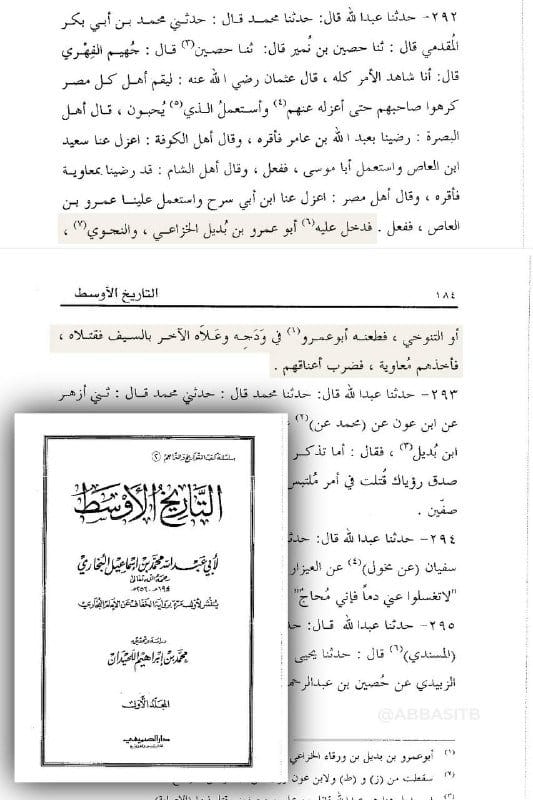 ٢٩٢- حدثنا عبدا لله قال: حدثنا محمد قال : حدثني محمد بن أبي بكر
المُقدمي قال : ثنا حصين بن نُمير قال: ثنا حصين(٣) قال : جُهيم الفِهْري
قال: أنا شاهد الأمر كله ، قال عثمان رضي ا لله عنه : ليقم أهل كل مصر
كرهوا صاحبهم حتى أعزله عنهم(٤) وأستعملُ الذي(٥) يُحبون ، قال أهل
البصرة : رضينا بعبد ا لله بن عامر فأقره ، وقال أهل الكوفة : اعزل عنا سعيد
ابن العاص واستعمل أبا موسى ، ففعل ، وقال أهل الشام : قد رضينا بمعاوية
فأقره ، وقال أهل مصر : اعزل عنا ابن أبي سرح واستعمل علينا عمرو بن
العاص ، ففعل . فدخل عليه(٦) أبو عمرو بن بُديل الخزاعي ، والنجوي(٧) ،
١٨٤ التاريخ الأوسط
أو التنوخي ، فطعنه أبوعمرو(١) في وَدَجِه وعَلاَه الآخر بالسيف فقتلاه ،
فأخذهم مُعاوية ، فضرب أعناقهم .
٢٩٣- حدثنا عبدا لله قال: حدثنا محمد قال : حدثني محمد قال : ثني أزهر
عن ابن عون عن (محمد عن)(٢)
ابن بُديل(٣) ، فقال : أما تذكر
صدق رؤياك قُتلت في أمر مُلتبس
صفّين .
٢٩٤- حدثنا عبدا لله قال: حدثنا
سفيان (عن مخول)(٤) عن العيزار
"لاتغسلوا عني دماً فإني مُحاجّ"
٢٩٥- حدثنا عبدا لله قال: حد
(المسندي)(٦) قال : حدثنا يحيى
الزبيدي عن حُصين بن عبدالرحم
(١) أبوعمرو بن بديل بن ورقاء الخزاعي
(٢) سقطت من (ز) و (ط) ولابن عون
سلسلة كتب التواريخ والتراجم (٢)
التَّاريخُ الأوْسَط
لأبي عَبدالله محمد بن إسماعيل البخاري
رحمه الله تعالى
١٩٤هـ - ٢٥٦هـ
دراسة وتحقيق
محمد بن إبراهيم اللحيدان
المجلد الأول
دار الصميعي
@ABBASITB